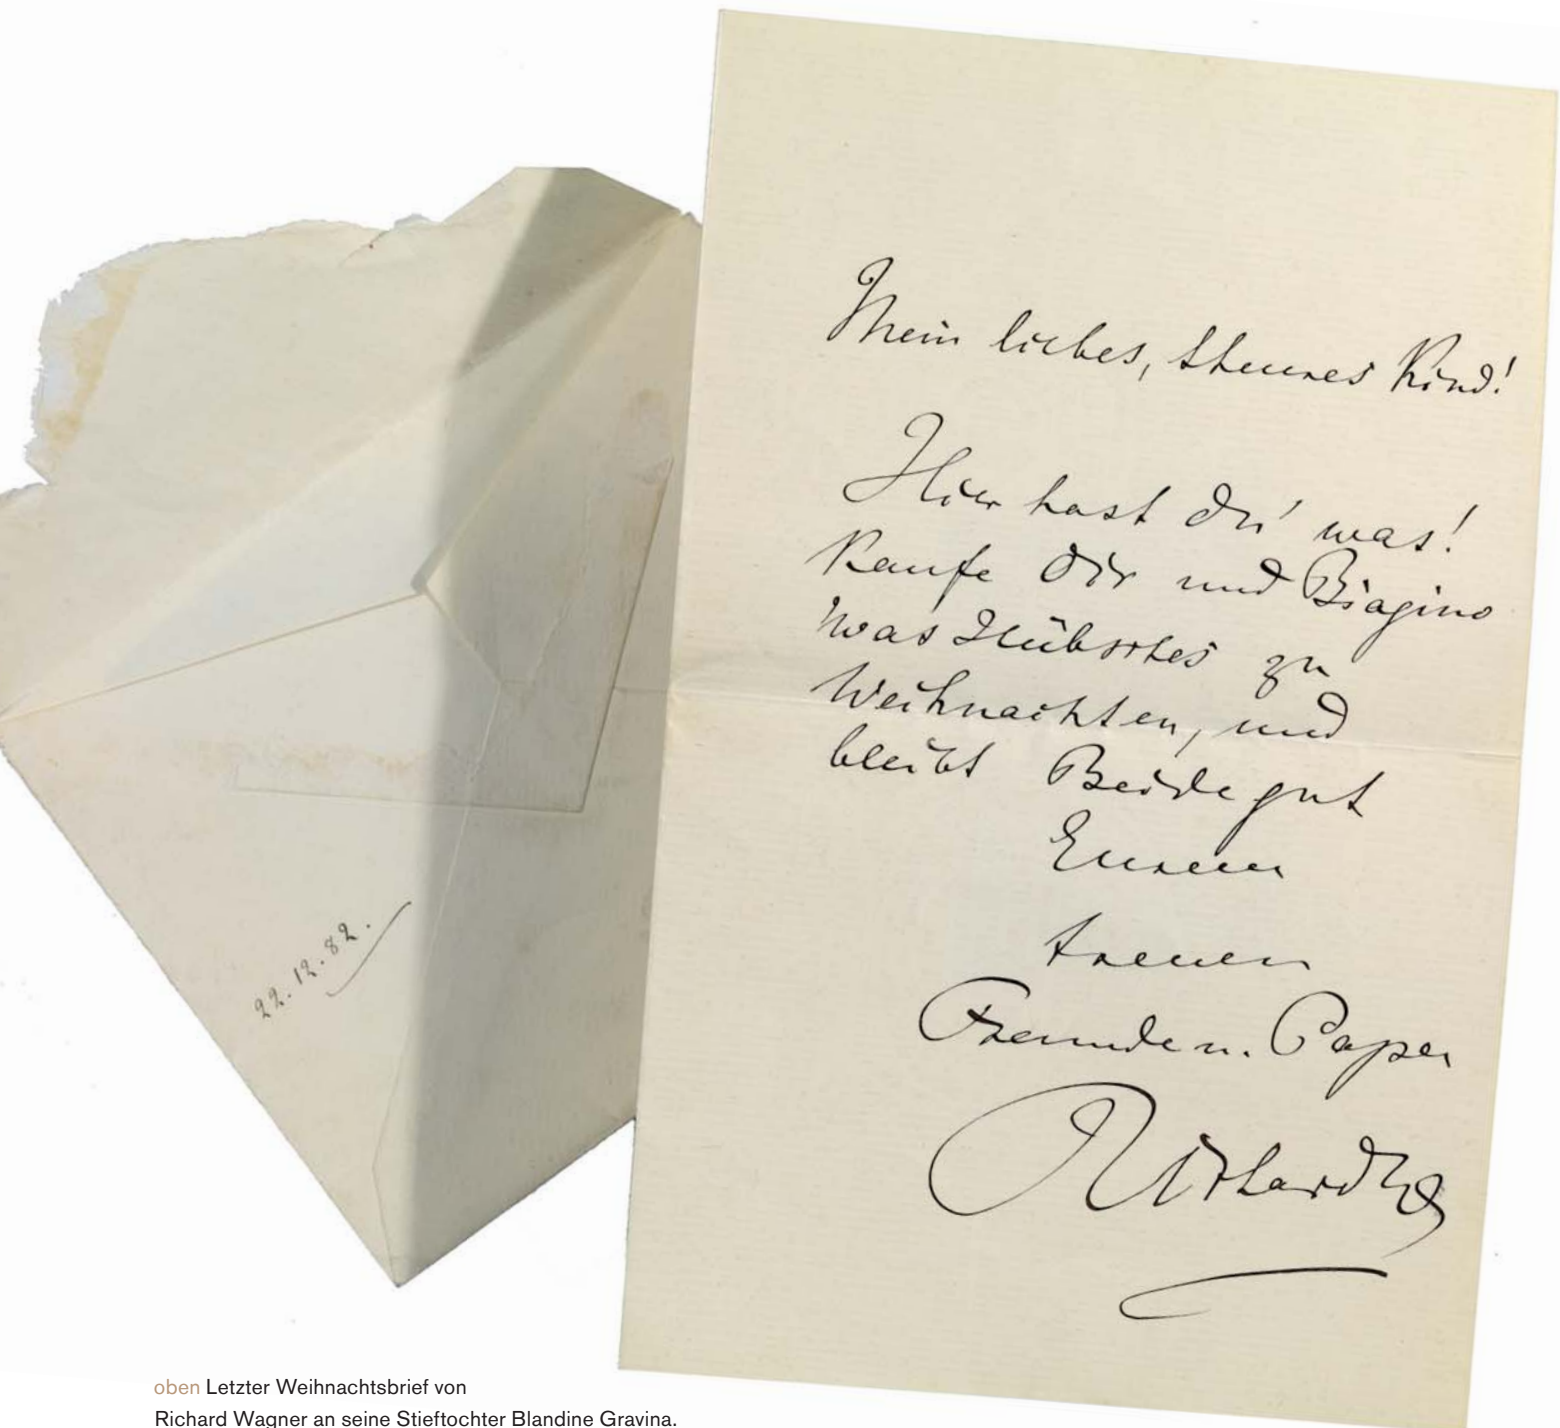 Mein liebes, theures Kind!
Hier hast du' was!
Kaufe dir und Biagino
was Hübsches zu
Weihnachten, und
bleibt Beide gut
Eurem
treuen
Freunde u. Papa
RichardW
22.12.82.
oben Letzter Weihnachtsbrief von
Richard Wagner an seine Stieftochter Blandine Gravina.